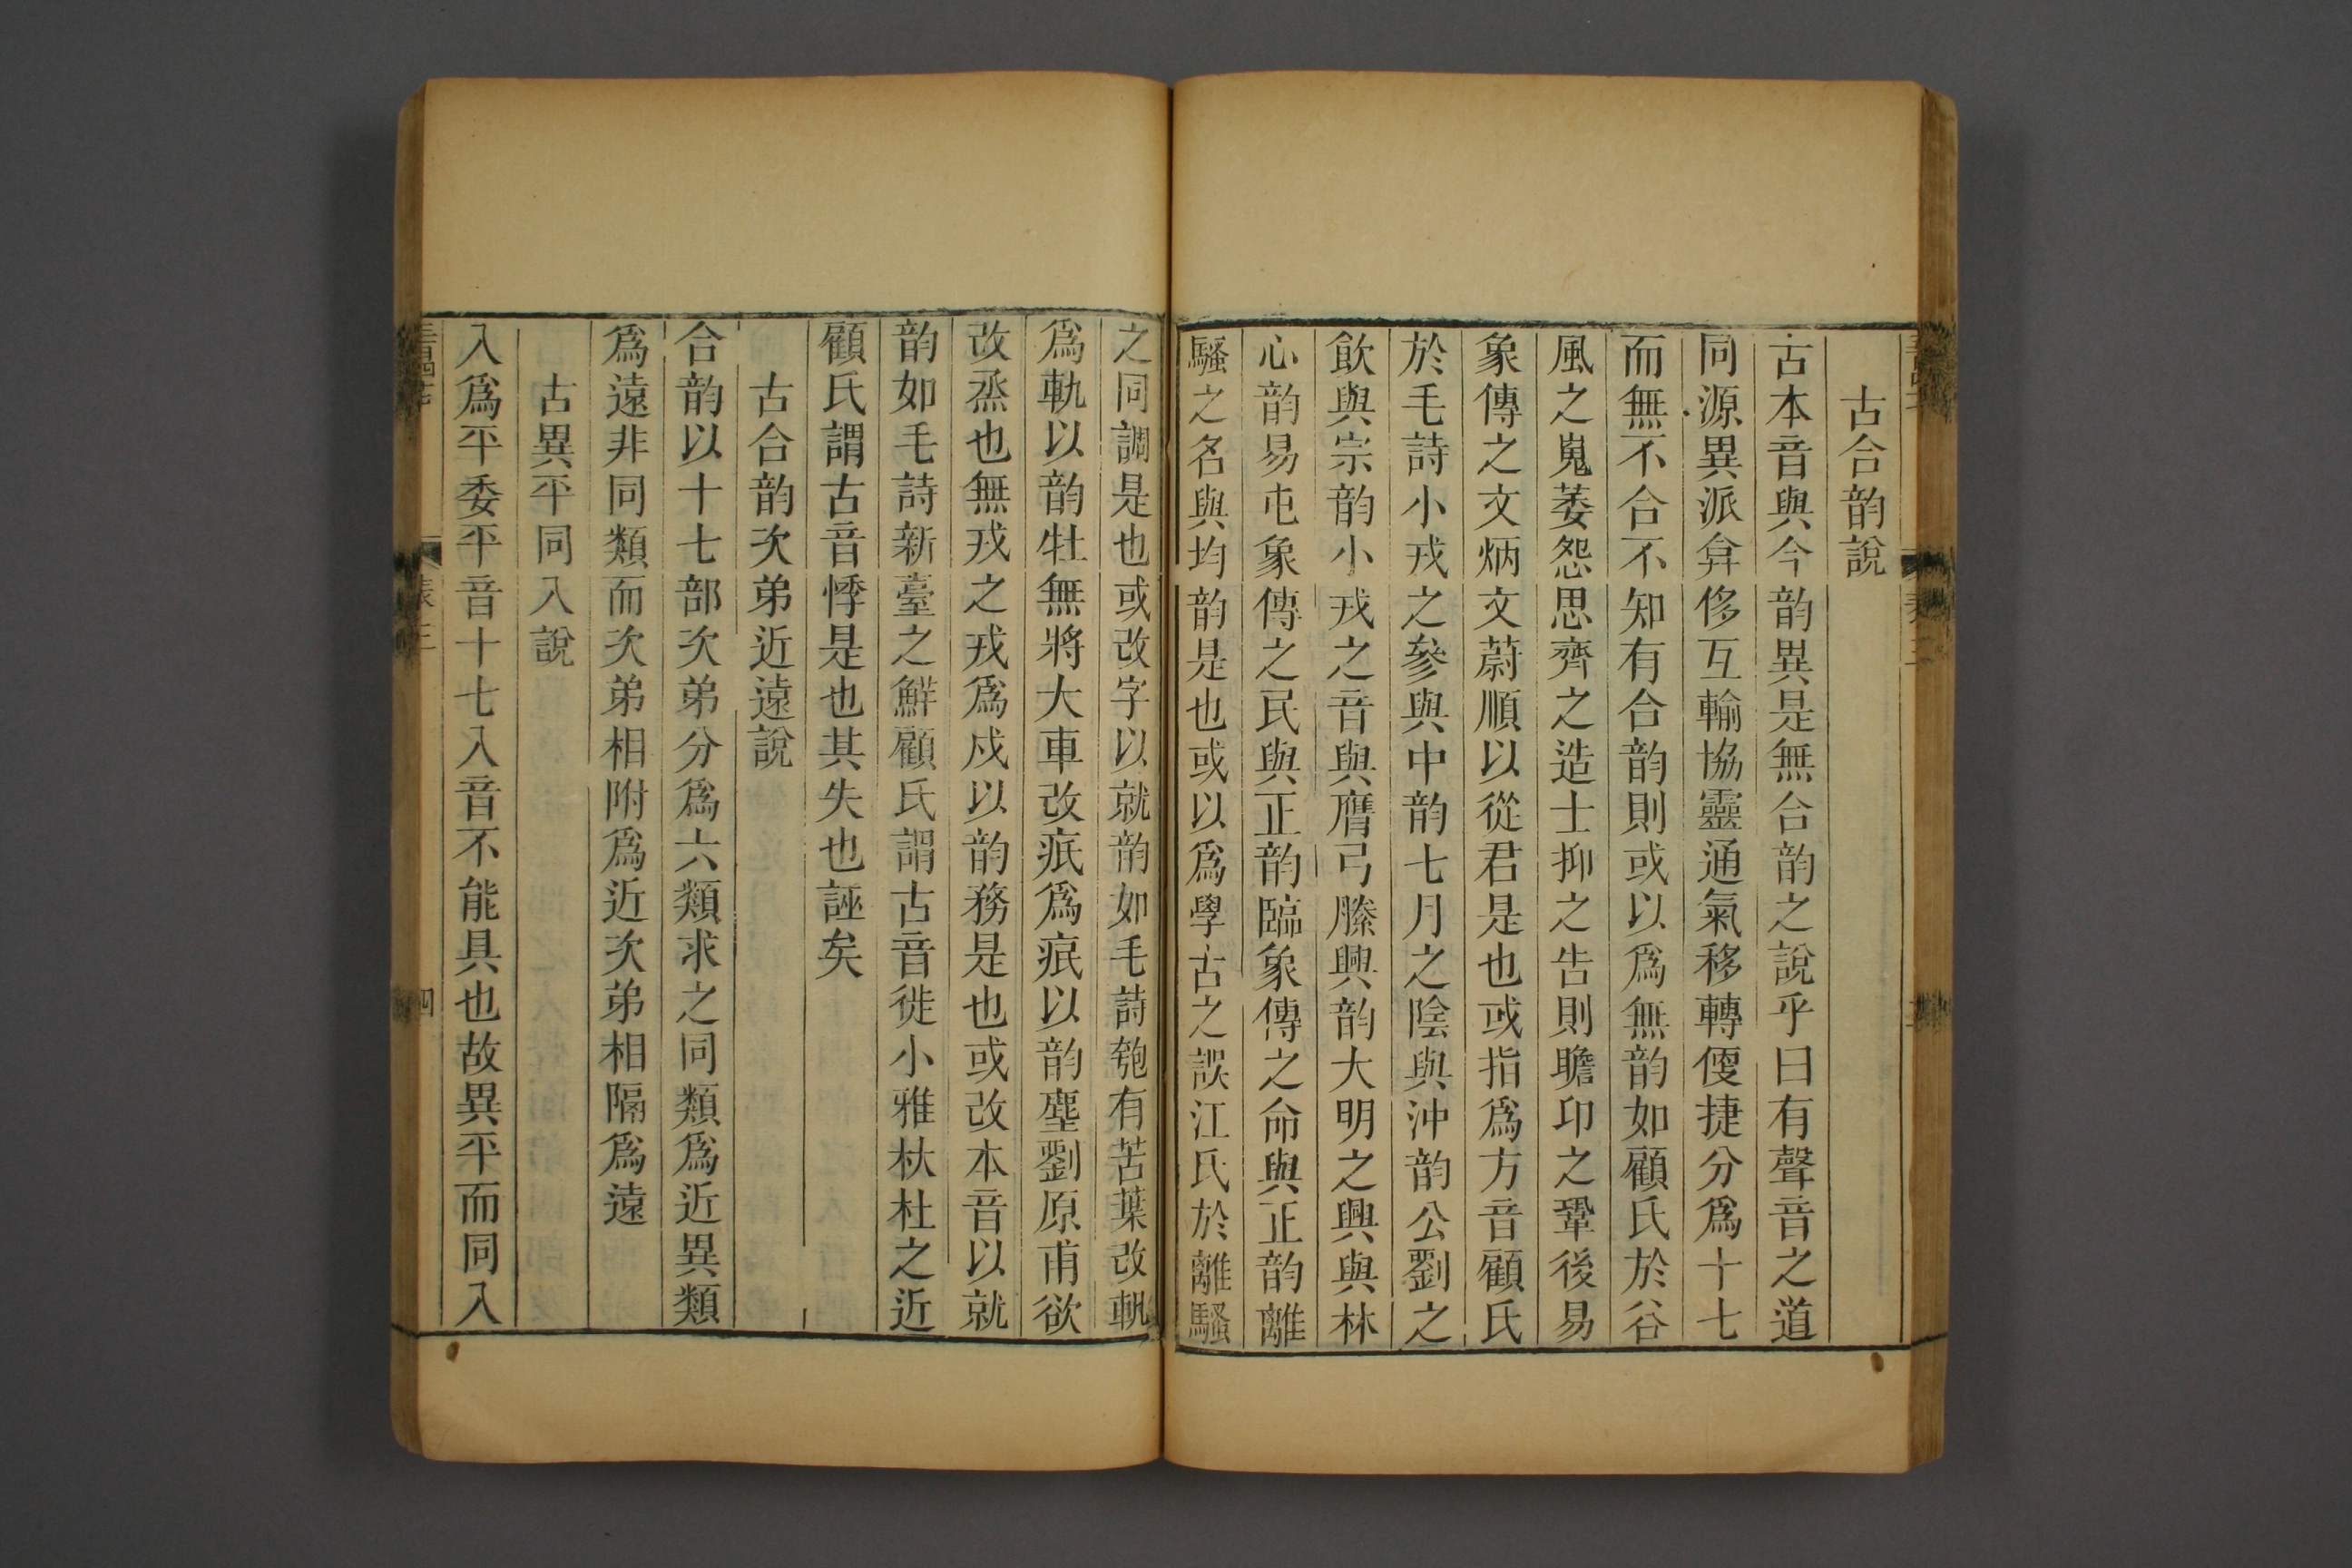 古合韵說
古本音與今韵異是無合韵之說乎曰有聲音之道
同源異派弇侈互輸協靈通氣移轉便捷分爲十七
而無不合不知有合韵則或以爲無韵如顧氏於谷
風之嵬萎怨思齊之造士抑之告則瞻卬之鞏後易
象傳之文炳文蔚順以從君是也或指爲方音顧氏
於毛詩小戎之參與中韵七月之陰與沖韵公劉之
飮與宗韵小戎之音與膺弓縢興韵大明之興與林
心韵易屯象傳之民與正韵臨象傳之命與正韵離
騷之名與均韵是也或以爲學古之誤江氏於離騷
之同調是也或改字以就韵如毛詩匏有苦葉改軌
爲軓以韵牡無將大車改疧爲痕以韵塵劉原甫欲
改烝也無戎之戎爲戍以韵務是也或改本音以就
韵如毛詩新臺之鮮顧氏謂古音徙小雅杕杜之近
顧氏謂古音悸是也其失也誣矣
古合韵次弟近遠說
合韵以十七部次弟分爲六類求之同類爲近異類
爲遠非同類而次弟相附爲近次弟相隔爲遠
古異平同入說
入爲平委平音十七入音不能具也故異平而同入
表三
四